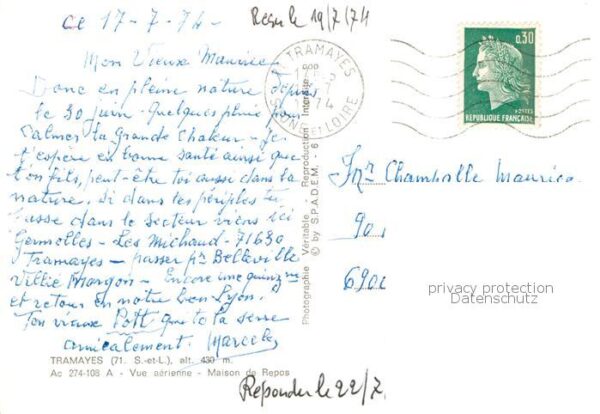 ce 17-7-74-
Reçu le 19/7/74
Mon Vieux Maurice.
Donc en pleine nature depuis
le 30 juin. Quelques pluie pour
calmer la Grande Chaleur - Je
t'espère en bonne santé ainsi que
ton fils, peut-être toi aussi dans la
nature. Si dans tes périples tu
passe dans le secteur viens ici
Germolles - Les Michaud - 71630
Tramayes - passer pr Belleville
Villié Morgon - Encore une quinzne
et retour en notre bon Lyon.
Ton vieux Pott qui te la serre
amicalement. Marcel
TRAMAYES (71. S.-et-L.), alt. 430 m.
Ac 274-108 A - Vue aérienne - Maison de Repos
Photographie Véritable - Reproduction Interdite
© by S.P.A.D.E.M. - 6
TRAMAYES
SAONE ET LOIRE
0,30
POSTES
REPUBLIQUE FRANÇAISE
Mr Maurice
90
690
privacy protection
Datenschutz
Répondu le 22/7.